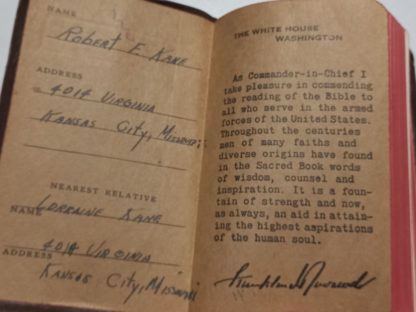 NAME
Robert F Kane
ADDRESS
4014 Virginia
Kansas City, Missouri
NEAREST RELATIVE
NAME
Lorraine Kane
4014 Virginia
ADDRESS
Kansas City, Missouri
THE WHITE HOUSE
WASHINGTON
As Commander-in-Chief I
take pleasure in commending
the reading of the Bible to
all who serve in the armed
forces of the United States.
Throughout the centuries
men of many faiths and
diverse origins have found
in the Sacred Book words
of wisdom, counsel and
inspiration. It is a foun-
tain of strength and now,
as always, an aid in attain-
ing the highest aspirations
of the human soul.
Franklin D Roosevelt